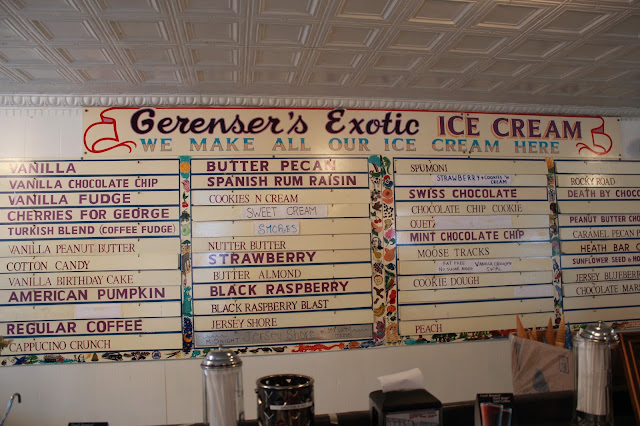 Gerenser's Exotic ICE CREAM
WE MAKE ALL OUR ICE CREAM HERE
VANILLA
VANILLA CHOCOLATE CHIP
VANILLA FUDGE
CHERRIES FOR GEORGE
TURKISH BLEND (COFFEE FUDGE)
VANILLA PEANUT BUTTER
COTTON CANDY
VANILLA BIRTHDAY CAKE
AMERICAN PUMPKIN
REGULAR COFFEE
CAPPUCINO CRUNCH
BUTTER PECAN
SPANISH RUM RAISIN
COOKIES N CREAM
SWEET CREAM
SMORES
NUTTER BUTTER
STRAWBERRY
BUTTER ALMOND
BLACK RASPBERRY
BLACK RASPBERRY BLAST
JERSEY SHORE
MIDNIGHT JERSEY SHORE
SPUMONI
STRAWBERRY + COOKIES 'N CREAM
SWISS CHOCOLATE
CHOCOLATE CHIP COOKIE
QUET
MINT CHOCOLATE CHIP
MOOSE TRACKS
FAT FREE
NO SUGAR ADDED
COOKIE DOUGH
PEACH
ROCKY ROAD
DEATH BY CHOCO
PEANUT BUTTER
CARAMEL PECAN
HEATH BAR
SUNFLOWER SEED
JERSEY BLUEBE
CHOCOLATE MARS